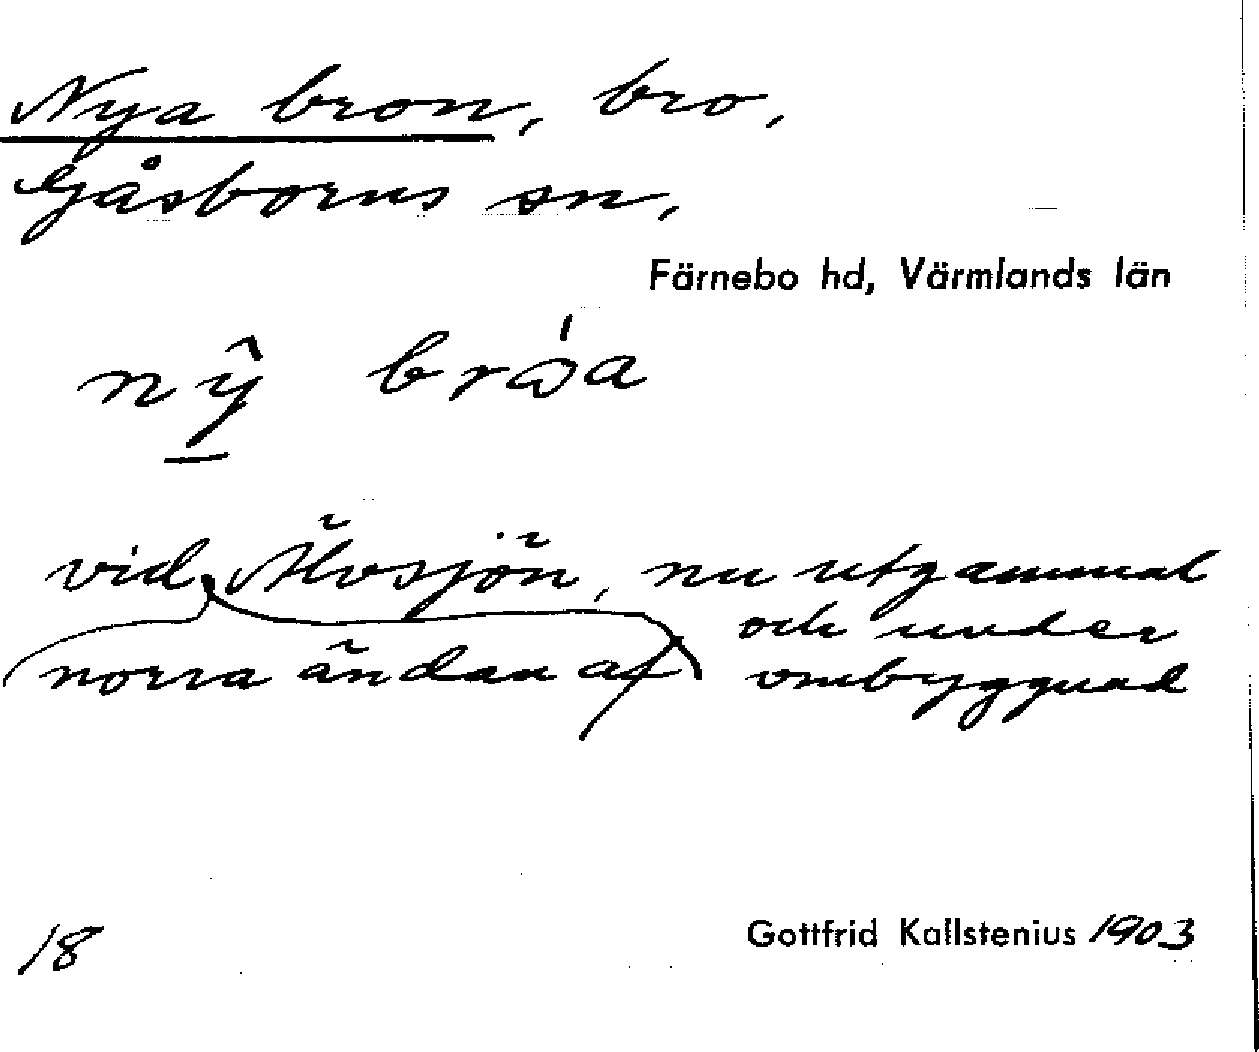 Nya bron, bro,
Gåsborns sn,
Färnebo hd, Värmlands län
nŷ bróa
vid Älvsjön, nu utgammal
och under
norra ändan af ombyggnad
18
Gottfrid Kallstenius 1903